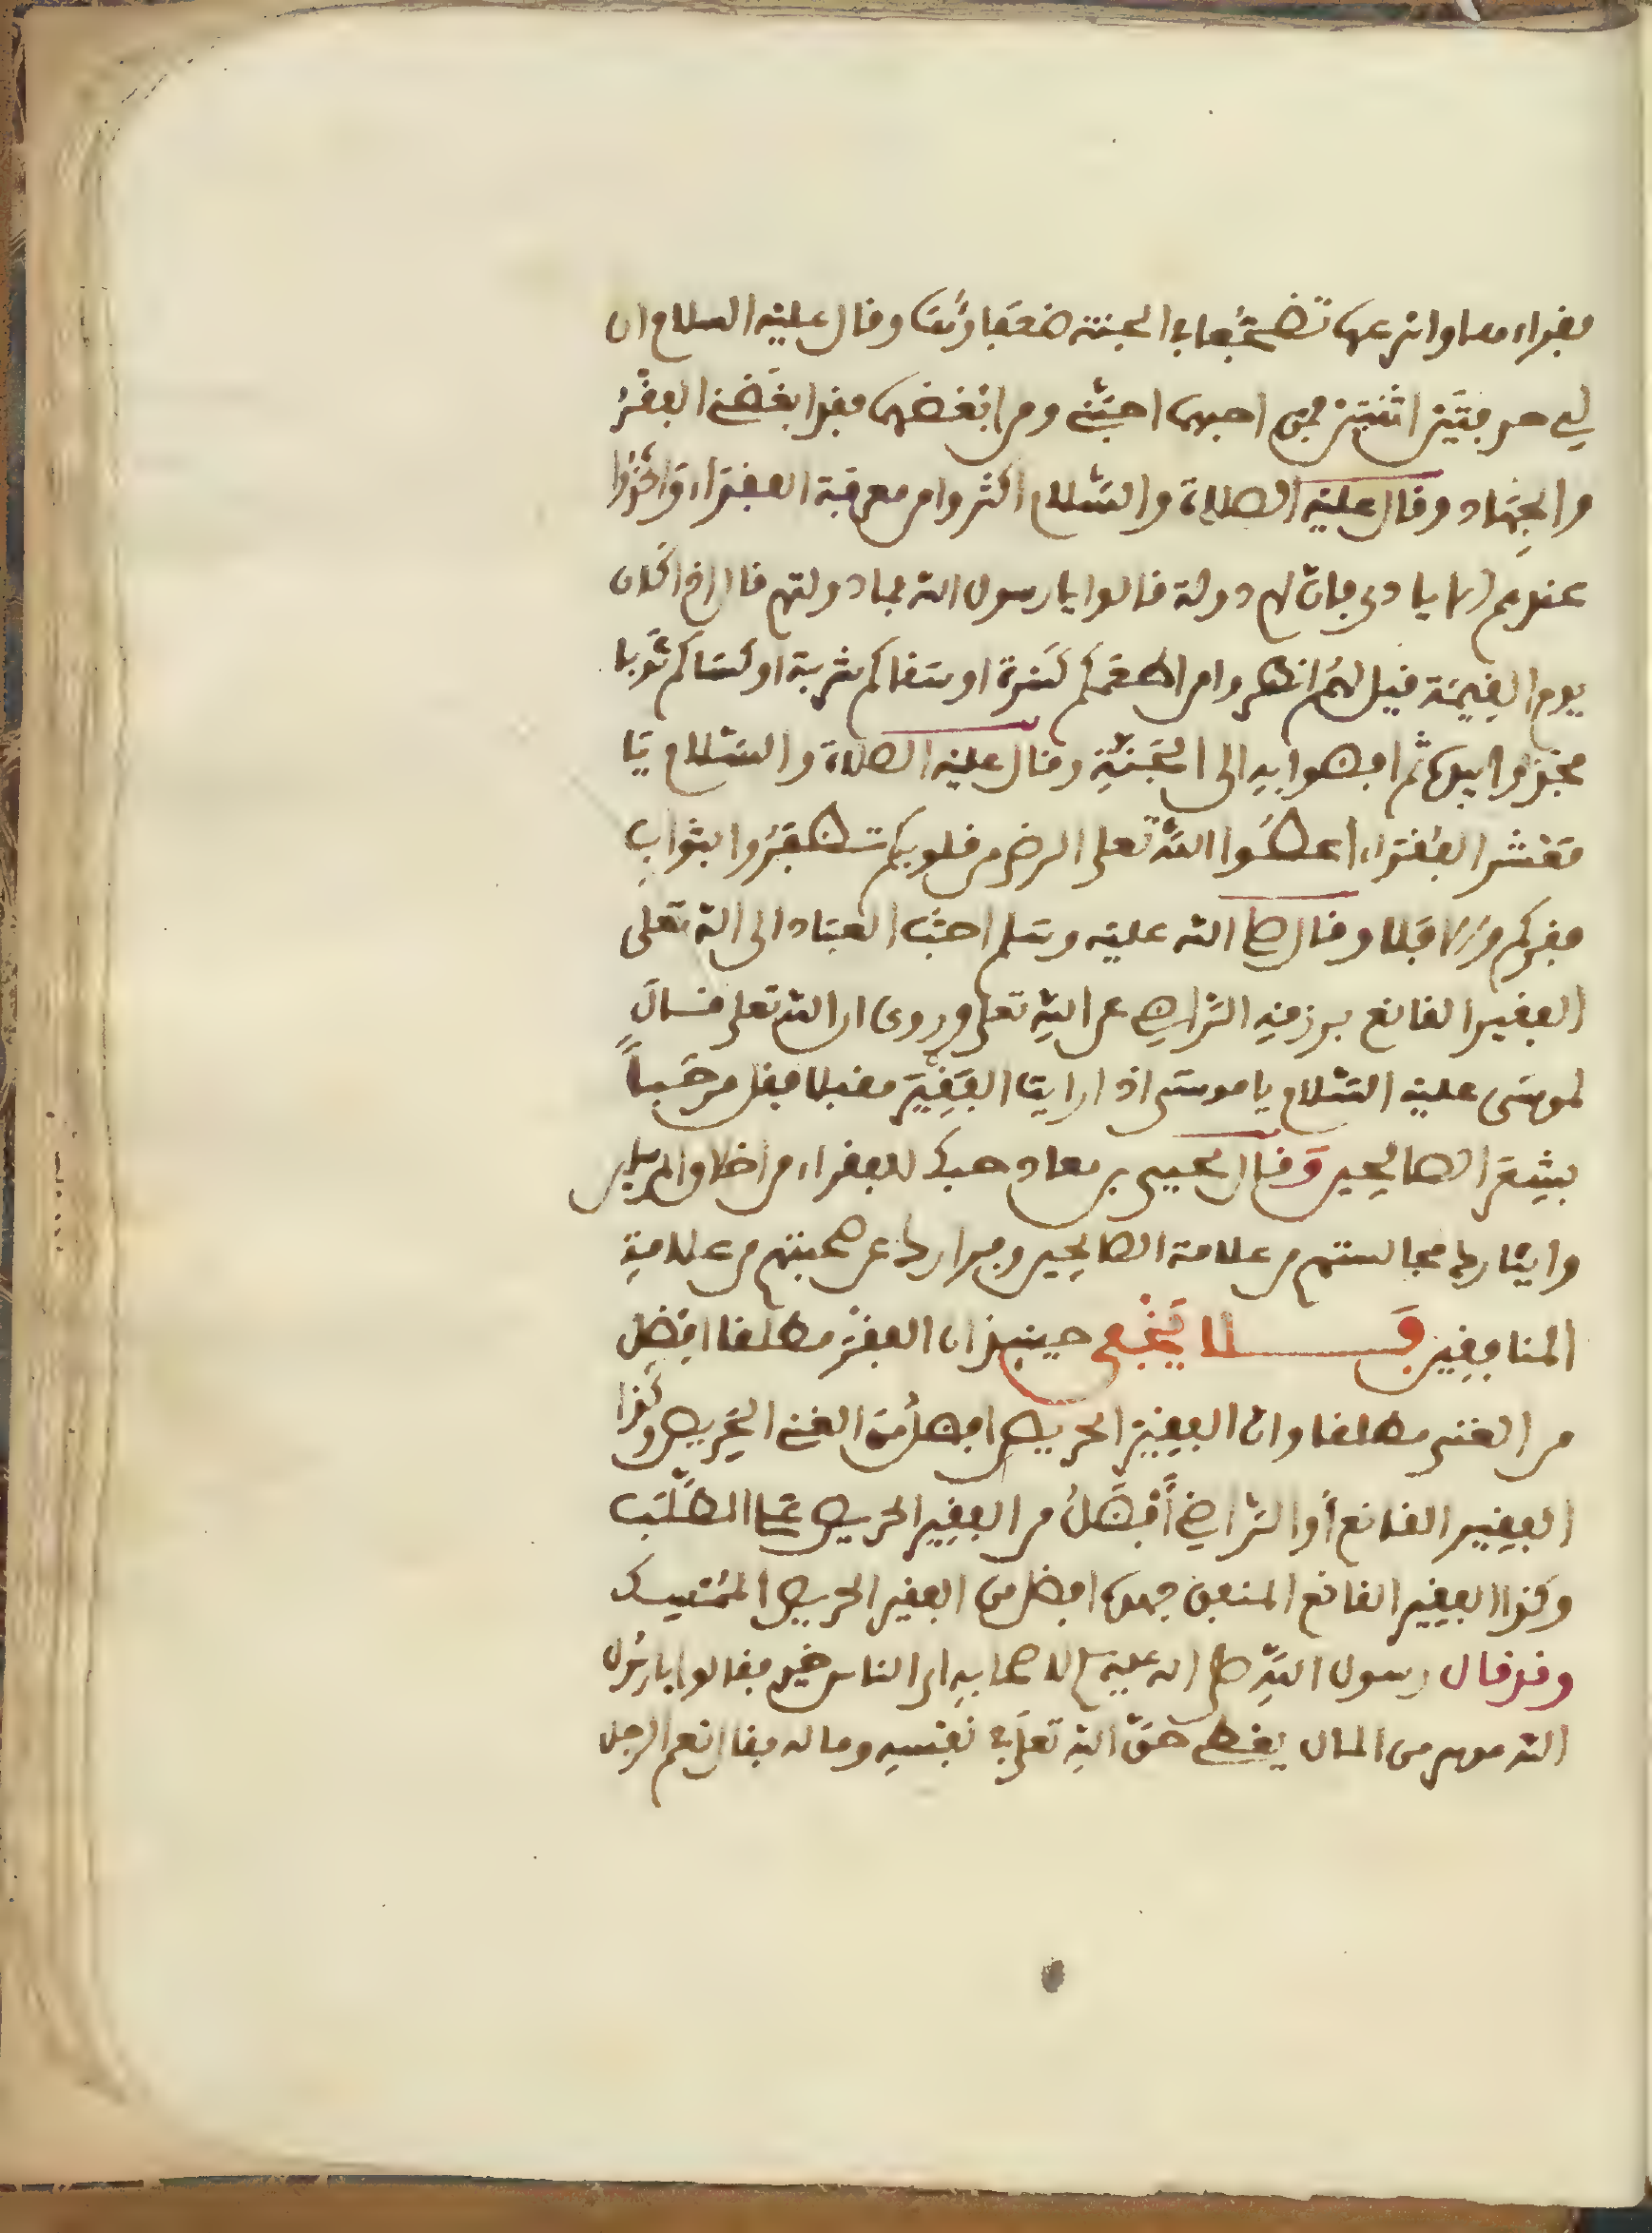 فقراءها واسرعها تضجعا في الجنة ضعفاؤها وقال عليه السلام ان
لي حرفتين اثنتين فمن احبهما احبني ومن ابغضهما فقد ابغضني الفقر
والجهاد وقال عليه الصلاة والسلام اكثروا من معرفة الفقراء واتخذوا
عندهم الايادي فان لهم دولة قالوا يا رسول الله فما دولتهم قال اذا كان
يوم القيمة قيل لهم انظروا من اطعمكم كسرة او سقاكم شربة او كساكم ثوبا
فخذوا بيده ثم افضوا به الى الجنة وقال عليه الصلاة والسلام يا
معشر الفقراء اعطوا الله تعلى الرضى من قلوبكم تظفروا بثواب
فقركم والا فلا وقال صلى الله عليه وسلم احب العباد الى الله تعلى
الفقير القانع برزقه الراضي عن الله تعلى وروي ان الله تعلى قال
لموسى عليه السلام يا موسى اذا رايت الفقير مقبلا فقل مرحبا
بشعار الصالحين وقال يحيى بن معاذ حبك للفقراء من اخلاق المرسلين
وايثارك مجالستهم من علامة الصالحين وفرارك عن صحبتهم من علامة
المنافقين فلا يخفى حينئذ ان الفقر مطلقا افضل
من الغنى مطلقا وان الفقير الحريص افضل من الغني الحريص وكذا
الفقير القانع أو الراضي أفضل من الفقير الحريص على الطلب
وكذا الفقير القانع المنفق جهده افضل من الفقير الحريص الممسك
وقد قال رسول الله صلى الله عليه وسلم لاصحابه اي الناس خير فقالوا يا رسول
الله موسر من المال يعطي حق الله تعلى في نفسه وماله فقال نعم الرجل